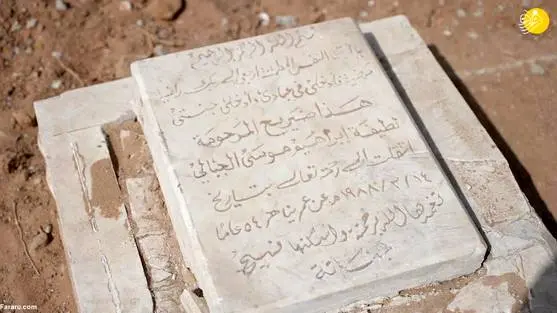 بسم الله الرحمن الرحيم
يا أيتها النفس المطمئنة ارجعي إلى ربك راضية
مرضية فادخلي في عبادي وادخلي جنتي
هذا ضريح المرحومة
لطيفة إبراهيم موسى الجبالي
انتقلت إلى رحمة تعالى بتاريخ
١٩٨٨/٣/١٤ م عن عمر يناهز ٥٤ عاماً
تغمدها الله برحمته وأسكنها فسيح
جناته
فرارو
Fararu.com